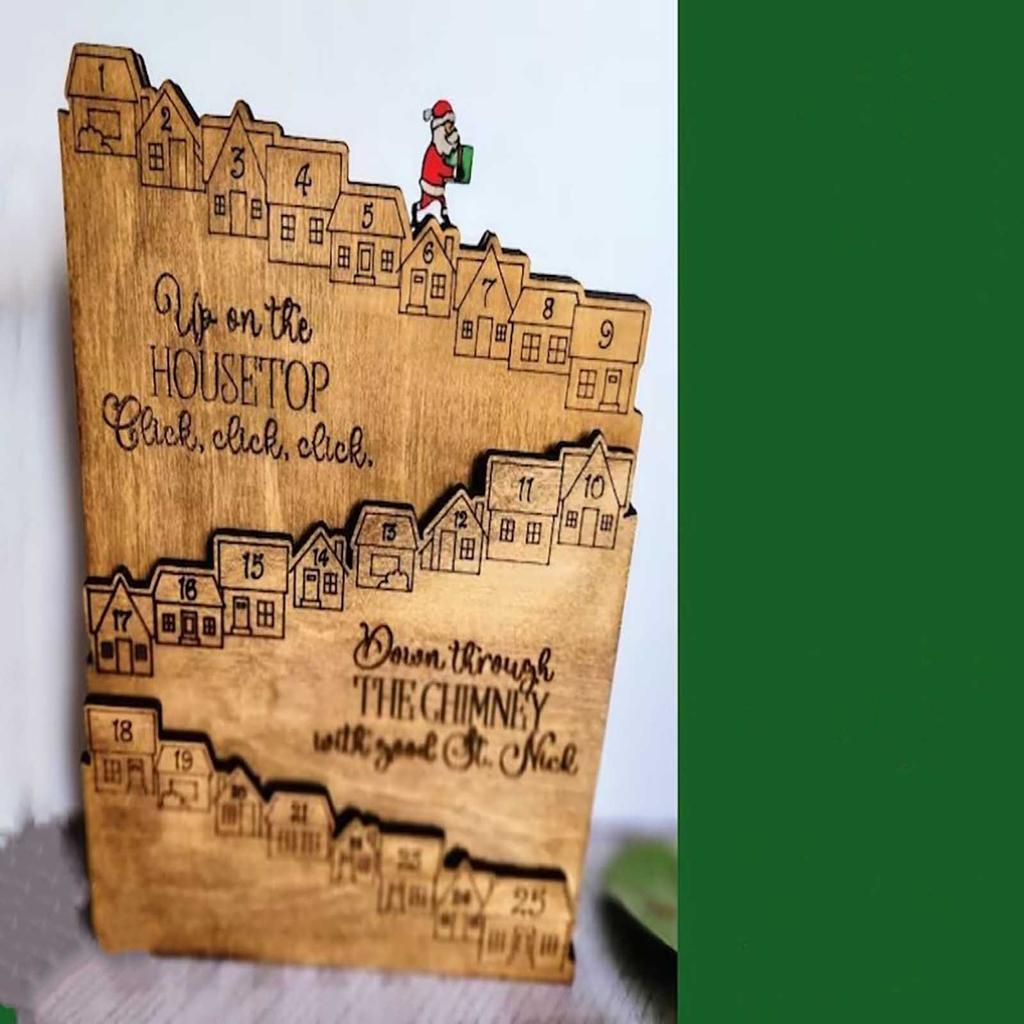 1
2
3
4
5
6
7
8
9
Up on the
HOUSETOP
Click, click, click.
11
10
12
13
14
15
16
17
Down through
THE CHIMNEY
with good St. Nick
18
19
20
21
23
24
25